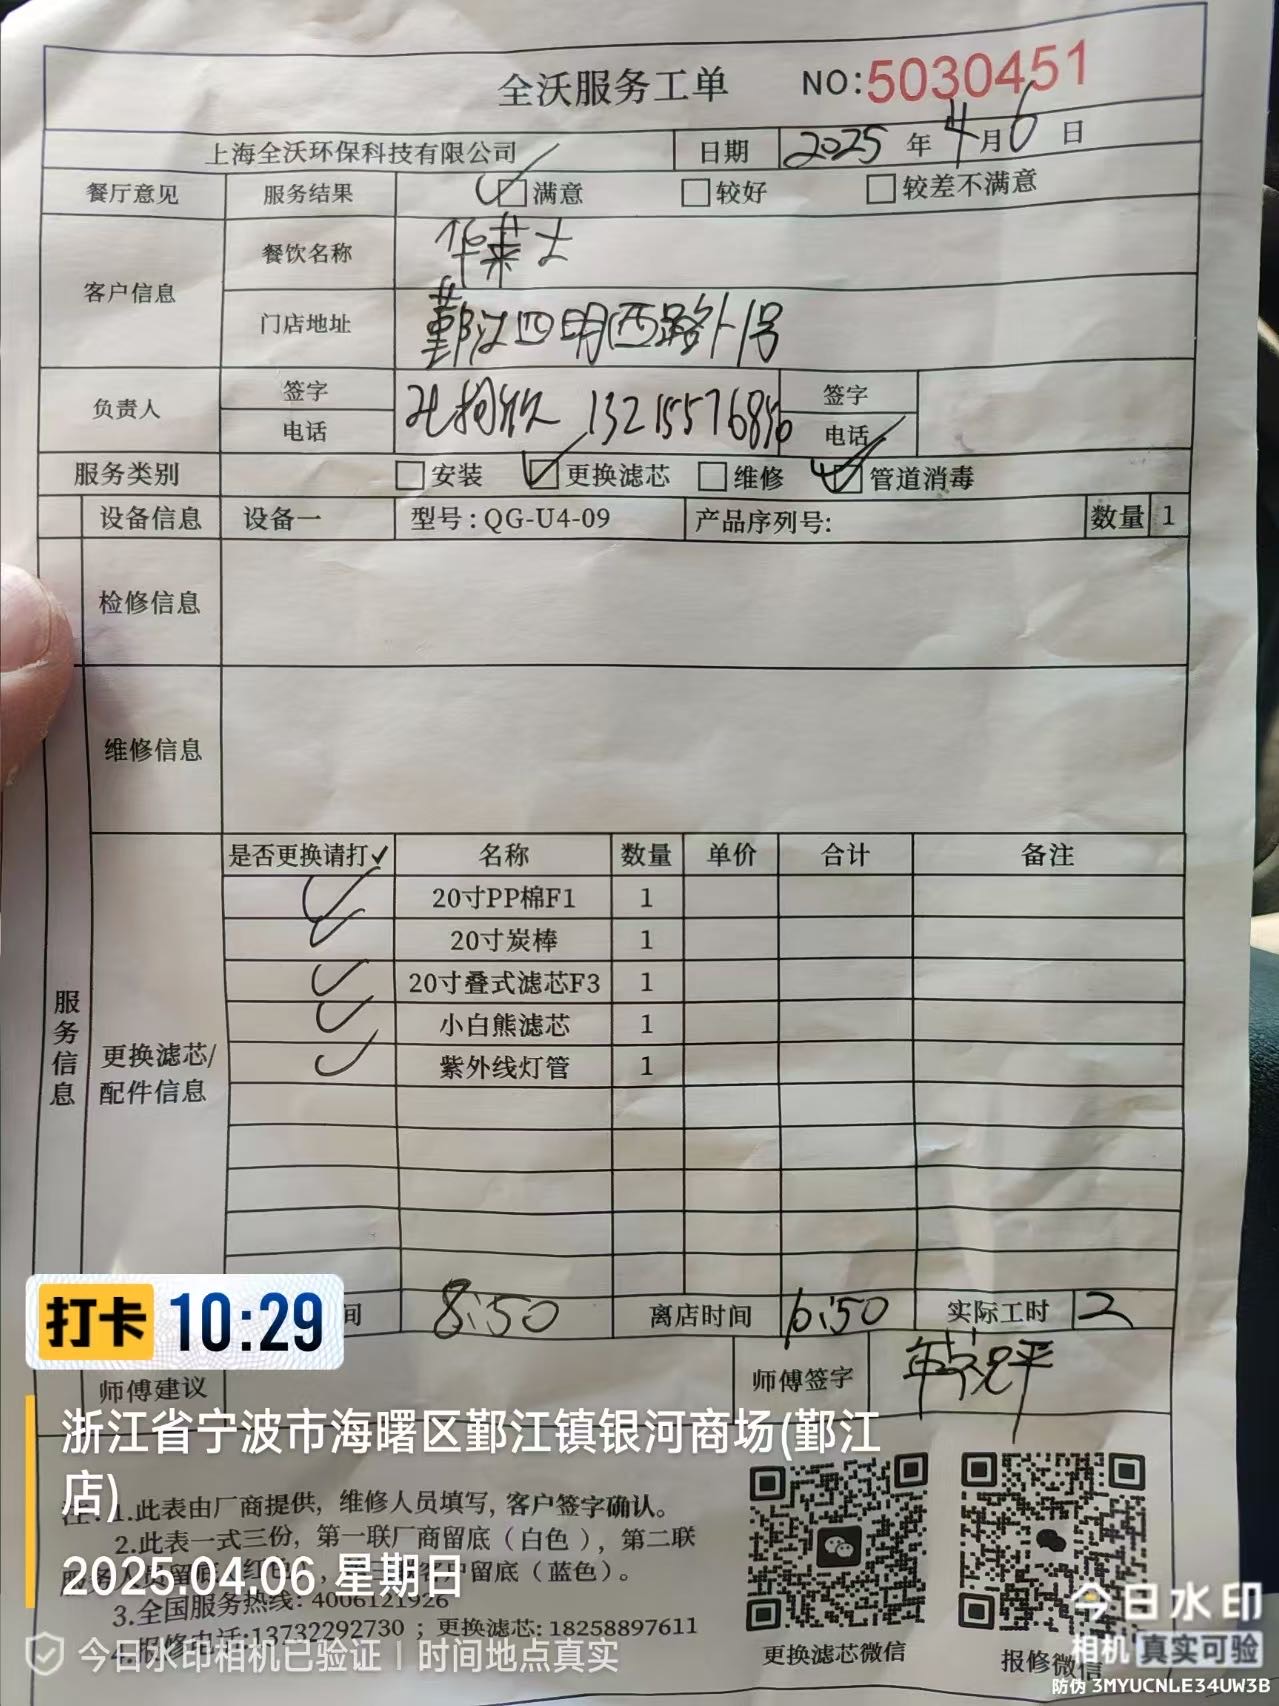 全沃服务工单 NO:5030451
上海全沃环保科技有限公司 日期 2025 年 4 月 6 日
餐厅意见 服务结果 满意 较好 较差不满意
客户信息 餐饮名称 华莱士
门店地址 鄞江四明西路外1号
负责人 签字 签字
电话 电话
服务类别 安装 更换滤芯 维修 管道消毒
设备信息 设备一 型号:QG-U4-09 产品序列号: 数量 1
检修信息
维修信息
是否更换请打✓ 名称 数量 单价 合计 备注
✓ 20寸PP棉F1 1
✓ 20寸炭棒 1
✓ 20寸叠式滤芯F3 1
✓ 小白熊滤芯 1
✓ 紫外线灯管 1
服务信息
更换滤芯/
配件信息
间 8:50 离店时间 10:50 实际工时 2
师傅建议 师傅签字
打卡 10:29
浙江省宁波市海曙区鄞江镇银河商场(鄞江
店)
2025.04.06 星期日
注:1.此表由厂商提供,维修人员填写,客户签字确认。
2.此表一式三份,第一联厂商留底(白色),第二联
客户留底(蓝色)。
3.全国服务热线:4006121926
4.报修电话:13732292730;更换滤芯:18258897611
更换滤芯微信 报修微信
今日水印相机已验证 时间地点真实
今日水印
相机 真实可验
防伪 3MYUCNLE34UW3B